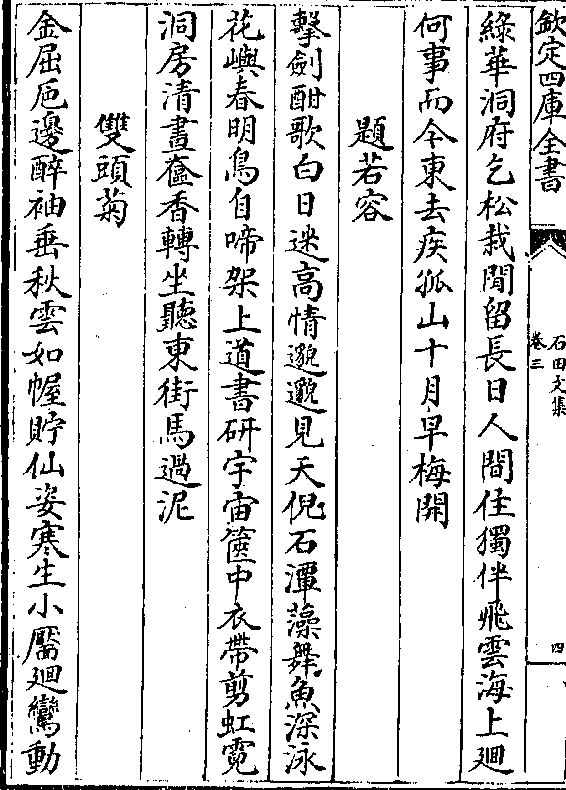 欽定四庫全書
石田文集
卷三
四
綠華洞府乞松栽閒留長日人間住獨伴飛雲海上廻
何事而今東去疾孤山十月早梅開
題若容
擊劍酣歌白日迷髙情邈邈見天倪石潭藻舞魚深泳
花嶼春明鳥自啼架上道書研宇宙篋中衣帶剪虹霓
洞房清晝薤香轉坐聽東街馬過泥
雙頭菊
金屈巵邊醉袖垂秋雲如幄貯仙姿寒生小靨廻鸞動